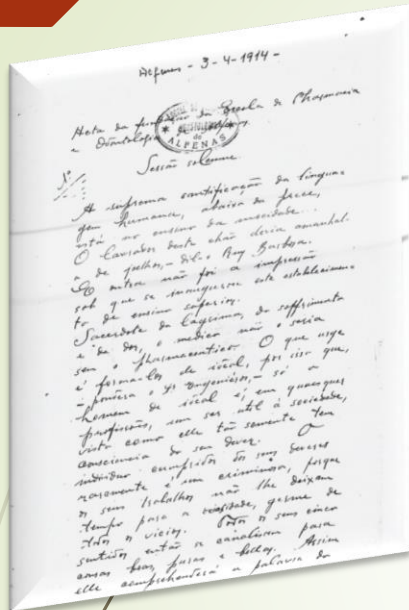 Alfenas - 3-4-1914 -
Acta da fundação da Escola de Pharmacia
e Odontologia de Alfenas
ALFENAS
Sessão solemne.
A suprema santificação da lingua-
gem humana, abaixo da prece,
está no ensino da mocidade...
O lavrador deste chão devia amanhal-
o de joelhos, - dil-o Ruy Barbosa.
E outra não foi a impressão
sob que se inaugurou este estabelecimen-
to de ensino superior.
Sacerdote da lagrima, do soffrimento
e da dor, o medico não o seria
sem o pharmaceutico. O que urge
é formal-os de ideal, por isso que,
- pondera o Dr. - só o
homem de ideal é, em quaesquer
profissões, um ser util á sociedade,
visto como elle tão somente tem
consciencia do seu dever. O
individuo cumpridor dos seus deveres
raramente é um criminoso, porque
os seus trabalhos não lhe deixam
tempo para a ociosidade, germe de
todos os vicios. Todos os seus cinco
sentidos então se canalisam para
cousas boas, puras e bellas. Assim
elle comprehenderá a palavra do